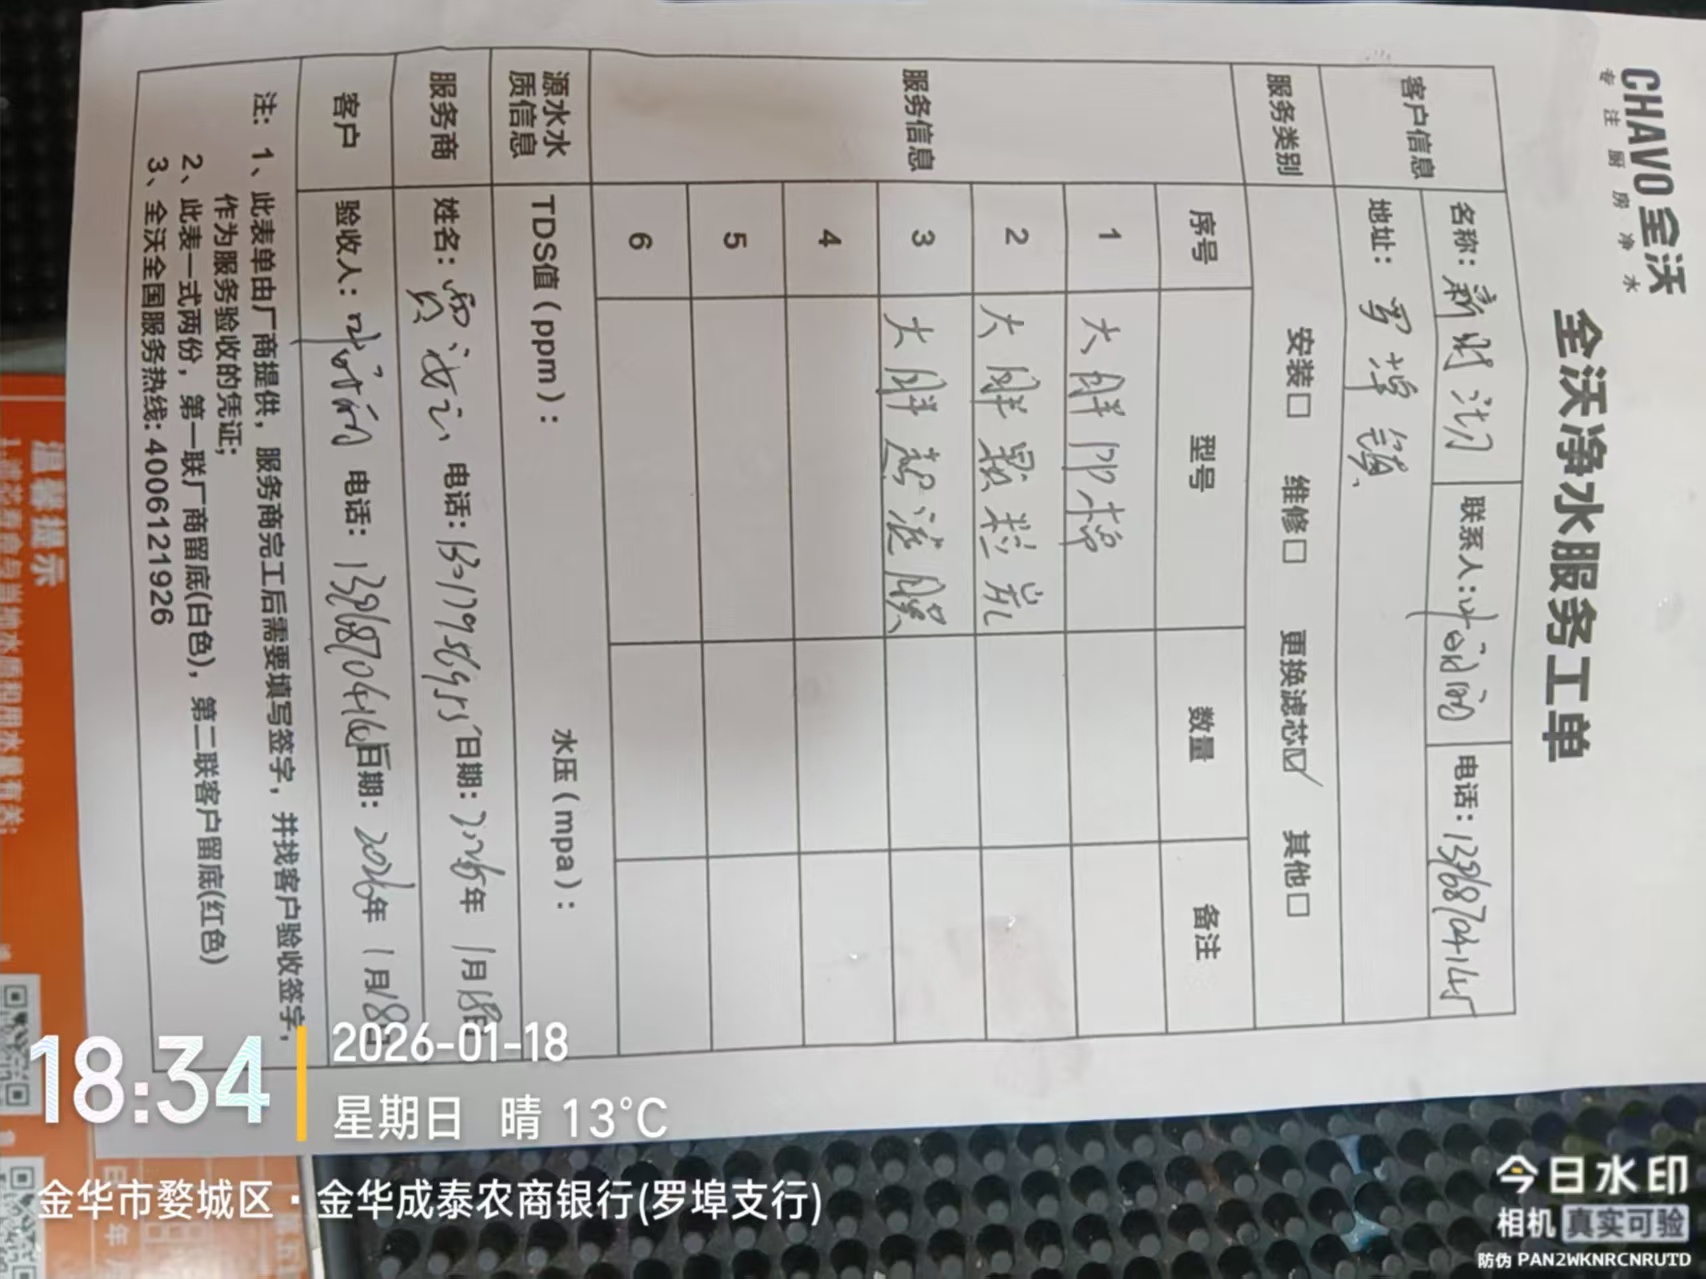 CHAVO 全沃
专注厨房净水
全沃净水服务工单
客户信息
名称: 联系人: 电话: 13968704145
地址: 罗埠镇
服务类别 安装□ 维修□ 更换滤芯☑ 其他□
服务信息
序号 型号 数量 备注
1 大胖
2 大胖颗粒炭
3 大胖超滤膜
4
5
6
源水水质信息
TDS值(ppm): 水压(mpa):
服务商 姓名: 电话: 日期: 2026年1月18日
客户 验收人: 电话: 日期: 2026年1月18日
注: 1、此表单由厂商提供, 服务商完工后需要填写签字, 并找客户验收签字,
作为服务验收的凭证;
2、此表一式两份, 第一联厂商留底(白色), 第二联客户留底(红色)
3、全沃全国服务热线: 4006121926
温馨提示
18:34
2026-01-18
星期日 晴 13°C
金华市婺城区·金华成泰农商银行(罗埠支行)
今日水印
相机 真实可验
防伪 PAN2WKNRCNRUTD